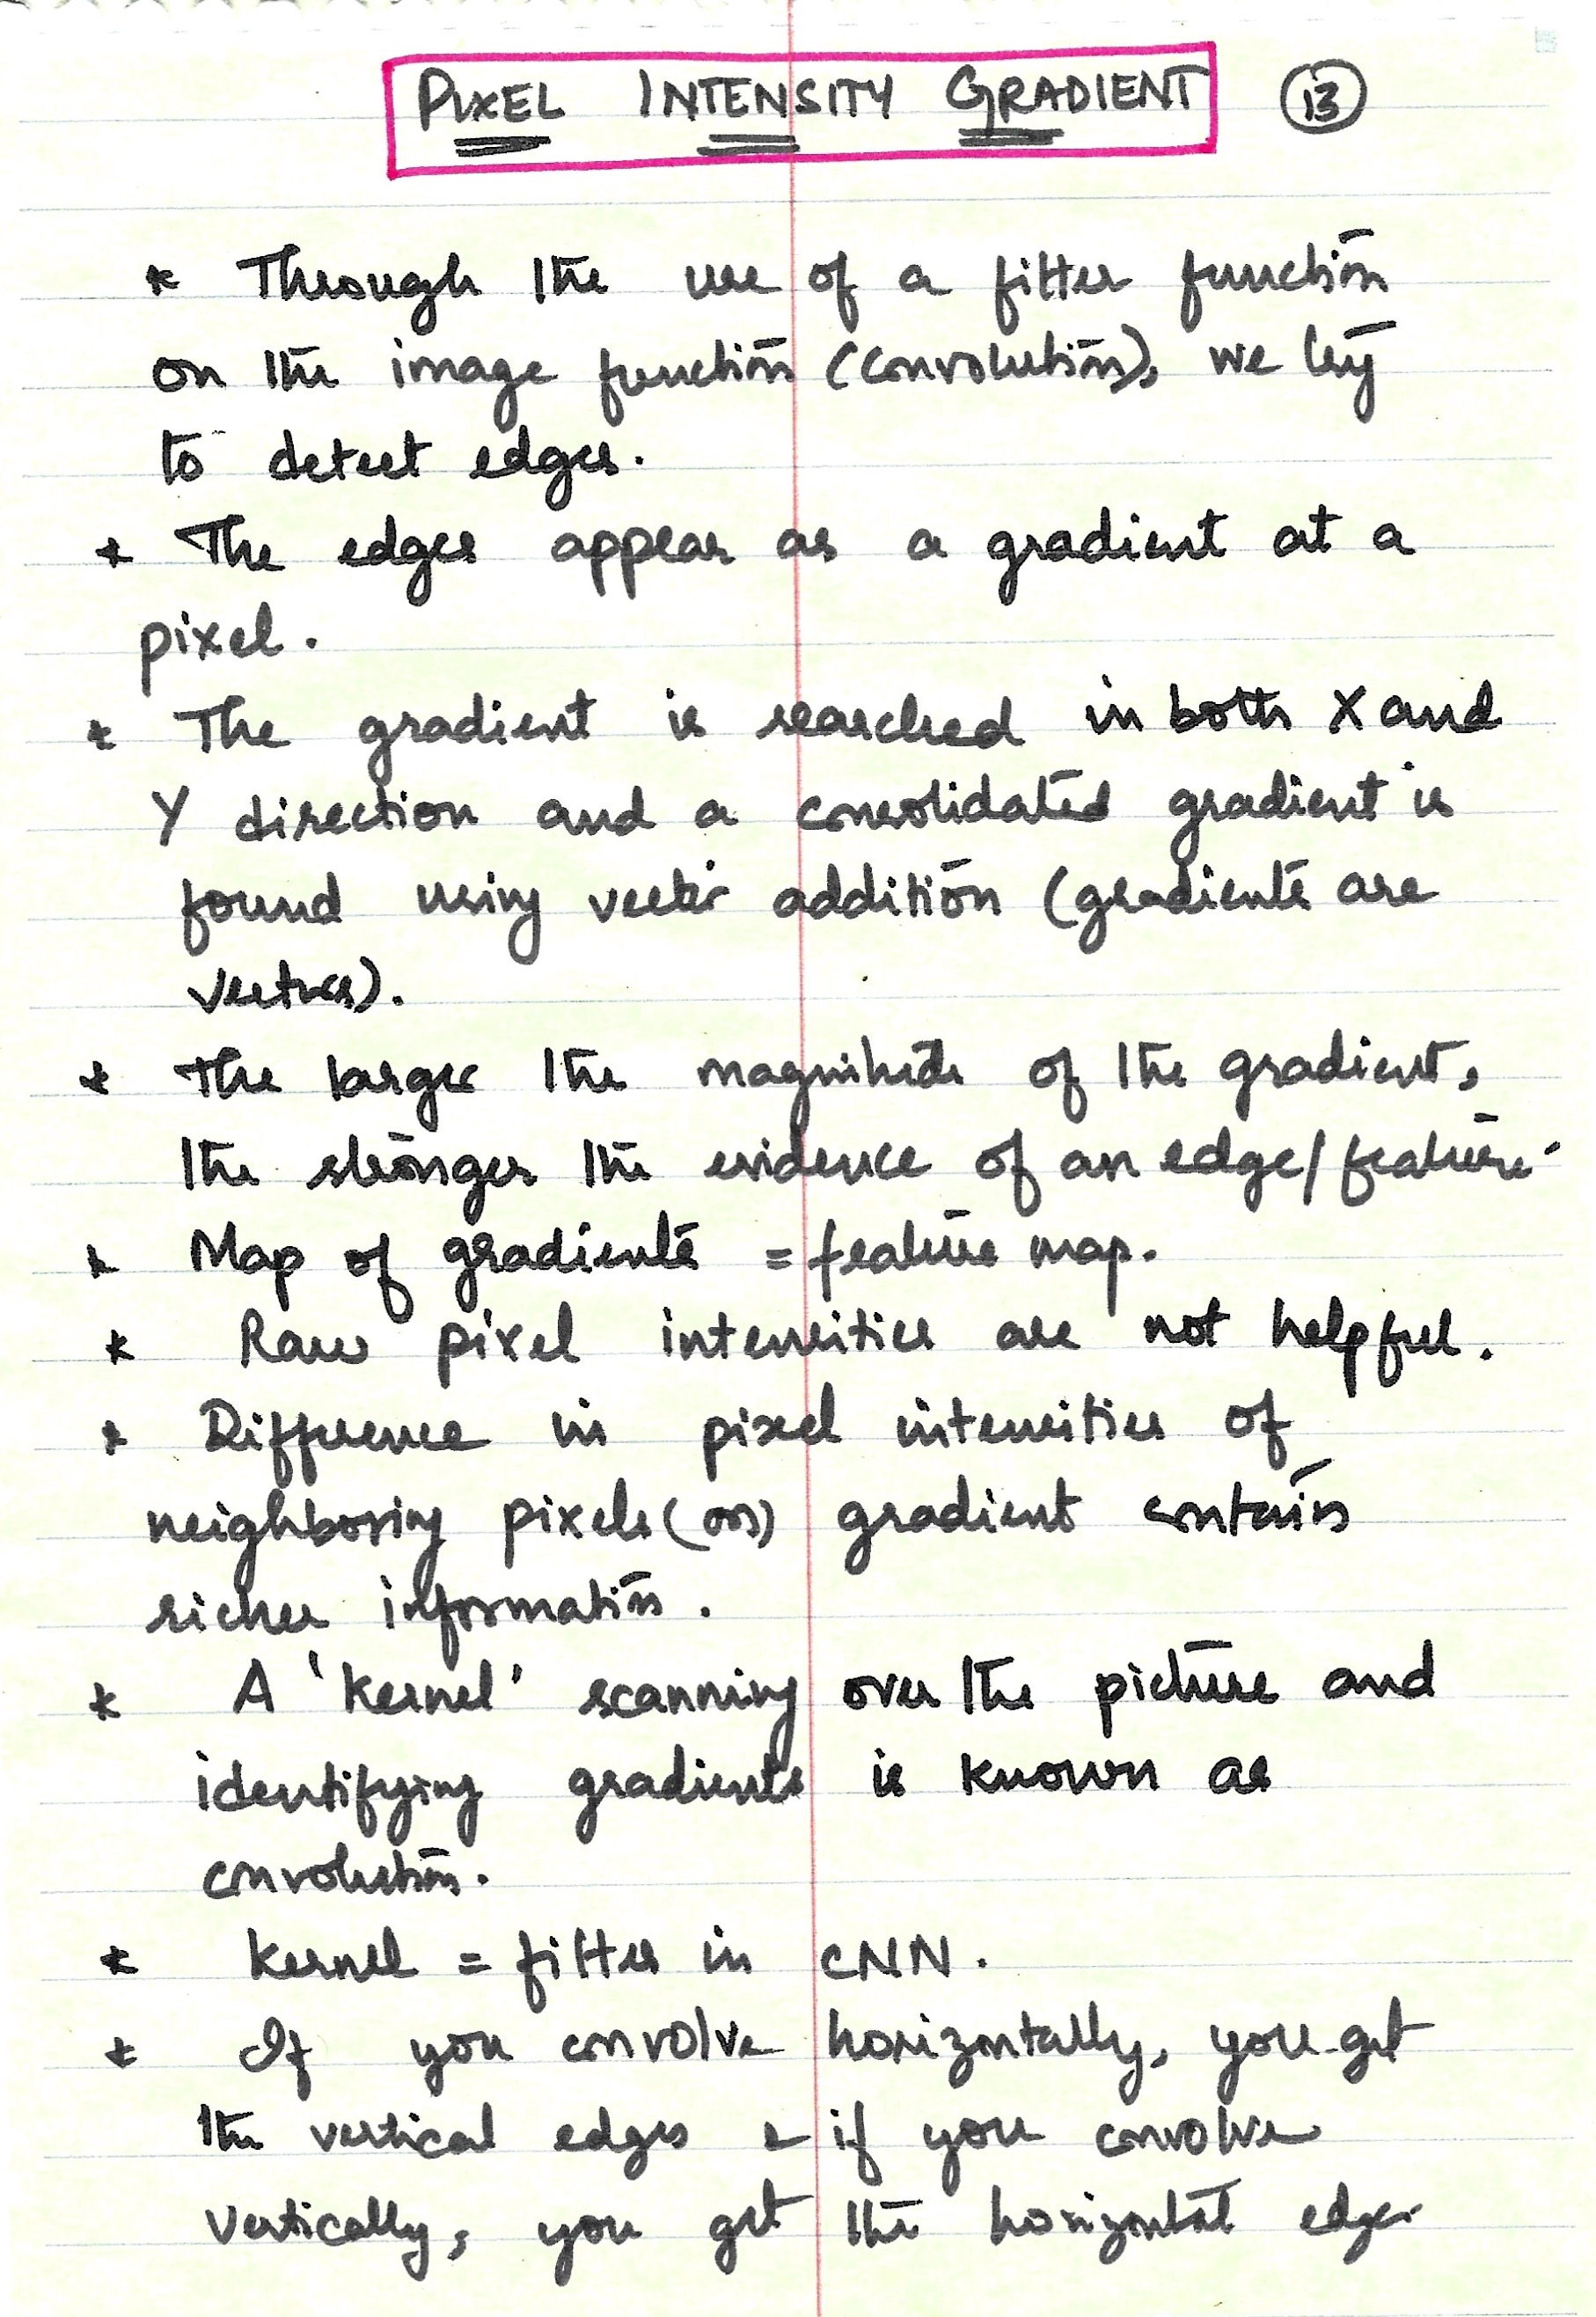 PIXEL INTENSITY GRADIENT 13
* Through the use of a filter function
on the image function (convolution), we try
to detect edges.
* The edges appear as a gradient at a
pixel.
* The gradient is searched in both X and
Y direction and a consolidated gradient is
found using vector addition (gradients are
vectors).
* The larger the magnitude of the gradient,
the stronger the evidence of an edge/feature.
* Map of gradients = feature map.
* Raw pixel intensities are not helpful.
* Difference in pixel intensities of
neighboring pixels (or) gradient contains
richer information.
* A 'kernel' scanning over the picture and
identifying gradients is known as
convolution.
* Kernel = filter in CNN.
* If you convolve horizontally, you get
the vertical edges & if you convolve
vertically, you get the horizontal edge.